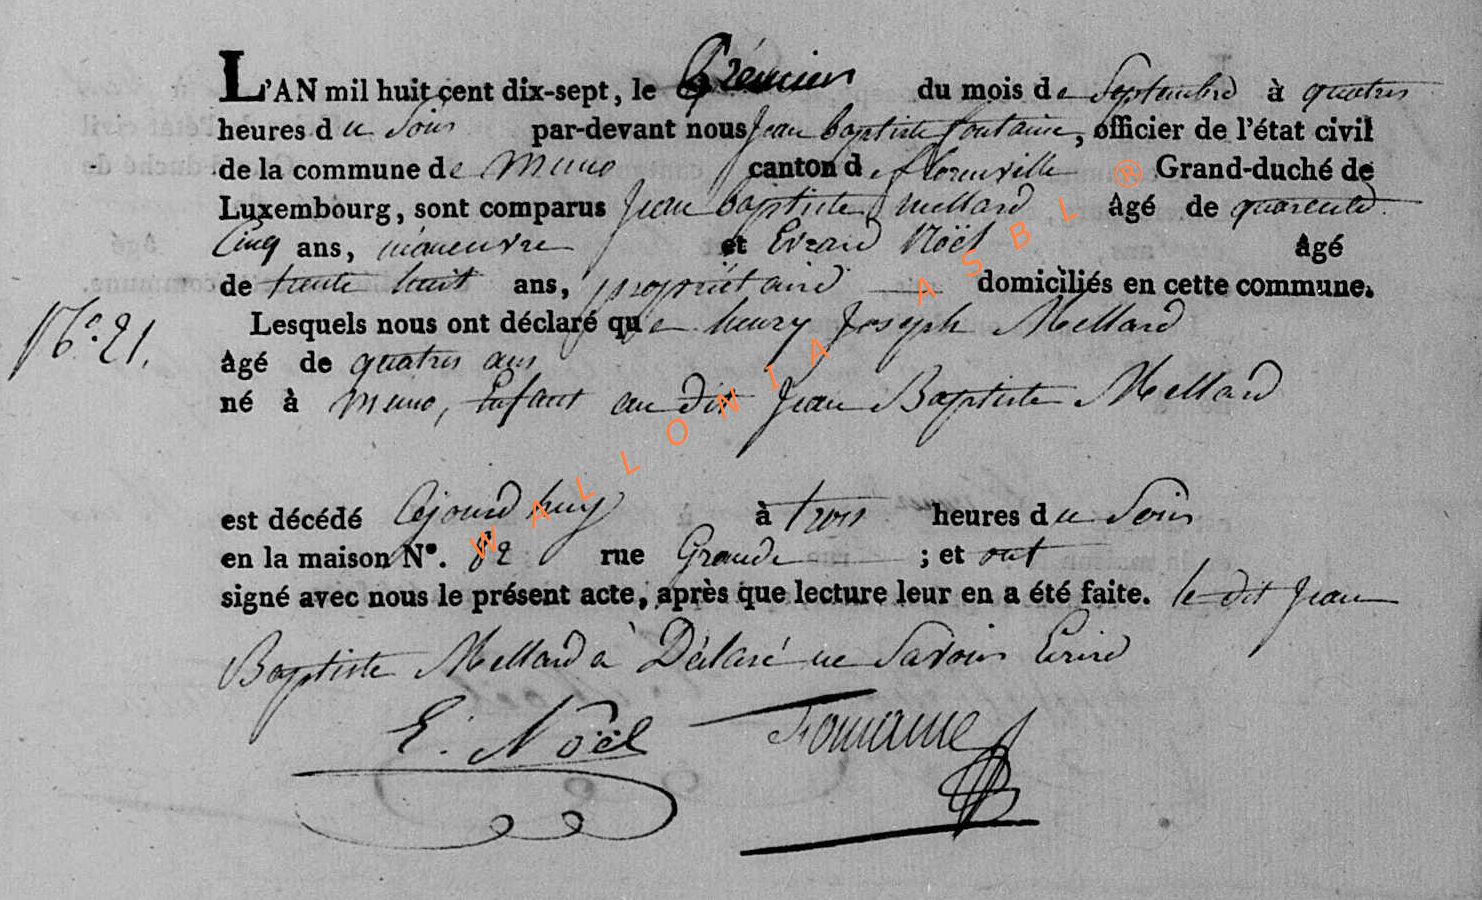 L'AN mil huit cent dix-sept, le Prémier du mois de Septembre à quatres
heures du Soir par-devant nous Jean baptiste fontaine, officier de l'état civil
de la commune de muno canton de florenville ® Grand-duché de
Luxembourg, sont comparus Jean baptiste mellard âgé de quarente
Cinq ans, maneuvre et Evrard Noël âgé
de trente huit ans, propriétaire domiciliés en cette commune.
Lesquels nous ont déclaré que henry Joseph Mellard
N.° 21.
âgé de quatres ans
né à muno, Enfant au dit Jean Baptiste Mellard
est décédé Ajourd huy à trois heures du Soir
en la maison N°. 82 rue Grande ; et ont
signé avec nous le présent acte, après que lecture leur en a été faite. le dit Jean
Baptiste Mellard à Déclaré ne Savoir Ecrire
E. Noël Fontaine
WALLONIA ASBL